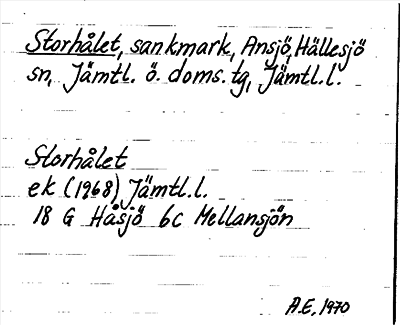 Storhålet, sankmark, Ansjö, Hällesjö
sn, Jämtl. ö. doms. tg, Jämtl. l.
Storhålet
ek (1968) Jämtl. l.
18 G Håsjö 6c Mellansjön
A.E., 1970